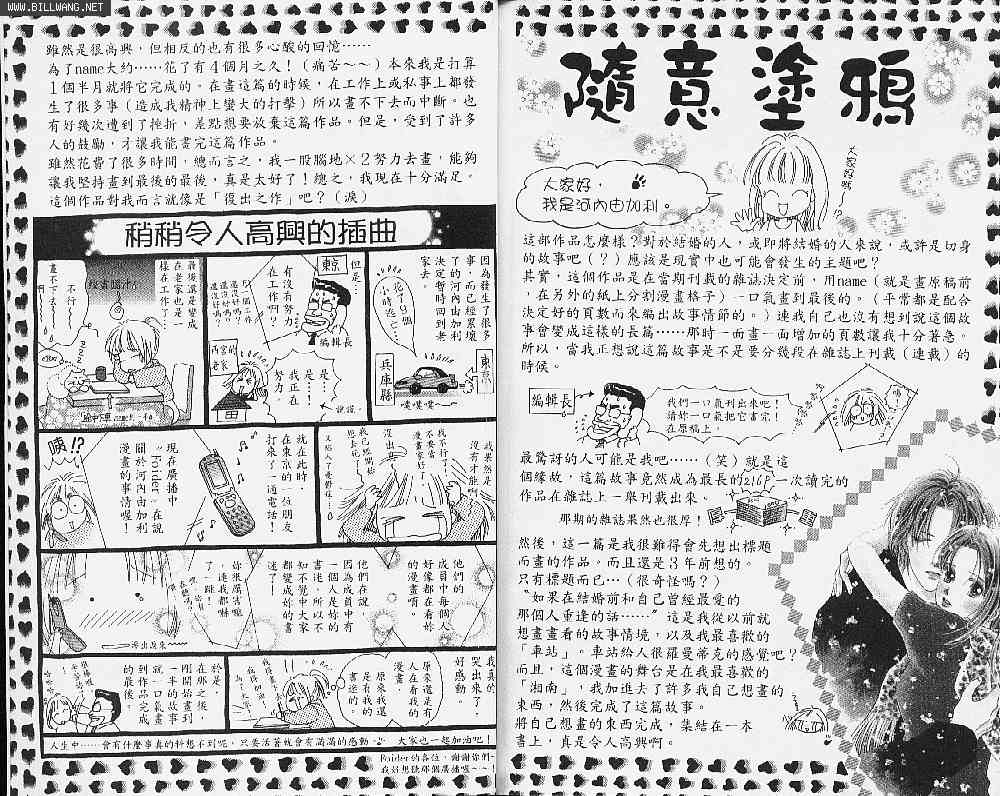 WWW.BILLWANG.NET
隨意塗鴉
大家好，
我是河內由加利。
大家好嗎
這部作品怎麼樣？對於結婚的人，或即將結婚的人來說，或許是切身
的故事吧（？）應該是現實中也可能會發生的主題吧？
其實，這個作品是在當期刊載的雜誌決定前，用name（就是畫原稿前
，在另外的紙上分割漫畫格子）一口氣畫到最後的。（平常都是配合
決定好的頁數而來編出故事情節的。）連我自己也沒有想到說這個故
事會變成這樣的長篇……那時一面畫一面增加的頁數讓我十分著急。
所以，當我正想說這篇故事是不是要分幾段在雜誌上刊載（連載）的
時候。
編輯長
我們一口氣刊出來吧！
請妳一口氣把它畫完！
在原稿上。
最驚訝的人可能是我吧……（笑）就是這
個緣故，這篇故事竟然成為最長的216P一次讀完的
作品在雜誌上一舉刊載出來、
那期的雜誌果然也很厚！
然後，這一篇是我很難得會先想出標題
而畫的作品。而且還是３年前想的。
只有標題而已…（很奇怪嗎？）
“如果在結婚前和自己曾經最愛的
那個人重逢的話……”這是我從以前就
想畫畫看的故事情境，以及我最喜歡的
「車站」。車站給人很羅曼蒂克的感覺吧？
而且，這個漫畫的舞台是在我最喜歡的
「湘南」，我加進去了許多我自己想畫的
東西，然後完成了這篇故事。
將自己想畫的東西完成，集結在一本
書上，真是令人高興啊。
雖然是很高興，但相反的也有很多心酸的回憶……
為了name大約……花了有４個月之久！（痛苦～～）本來我是打算
１個半月就將它完成的。在畫這篇的時候，在工作上或私事上都發
生了很多事（造成我精神上蠻大的打擊）所以畫不下去而中斷。也
有好幾次遭到了挫折，差點想要放棄這篇作品。但是，受到了許多
人的鼓勵，才讓我能畫完這篇作品。
雖然花費了很多時間，總而言之，我一股腦地×２努力去畫，能夠
讓我堅持畫到最後的最後，真是太好了！總之，我現在十分滿足。
這個作品對我而言就像是「復出之作」吧？（淚）
稍稍令人高興的插曲
因為發生了很多
事，而已經累壞
了的河內由加利
決定暫時回到老
家去。
花了９個
小時逃亡…
兵庫縣
噗噗噗～～
但是…
東京
有沒有努力
在工作啊？
編輯長
還沒好嗎？
還沒好嗎？
是…是！
我正在
努力。
說謊。
最後還是變成
在老家也是一
樣在工作了…
絞盡腦汁
不行…
畫不下去了
我果然是
沒有才能啊
就在此時，
在東京的一位朋友
打來了一通電話！
咦!?
現在廣播中
“Roider”在說
關於河內由加利
漫畫的事情喔！
他們的
成員中每個人
好像都在看妳
的漫畫唷。
他們在說
因為成員中有
一個人是妳的
書迷，所以不
知不覺中大家
都變成妳的書
迷了！
妳很厲害嘛
，連我都嚇
了一跳！
我真的
好感動。
哭出來了。
原來還是
有人在看我的
漫畫。
原來還是有
人是看我的
書迷的。
於是，
在那之後，
剛開始畫到
一半的故事
到作品完成
的最後。
人生中……會有什麼事真的料想不到呢。只要活著就會有滿滿的感動。大家也一起加油吧！
Roider的各位，謝謝你們~
我好想聽那個廣播喔～～！